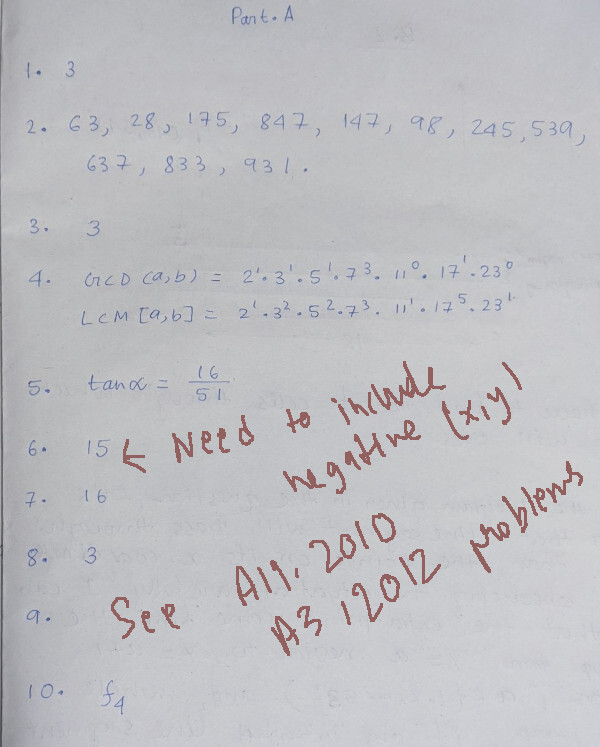 Part. A
1. 3
2. 63, 28, 175, 847, 147, 98, 245, 539,
637, 833, 931.
3. 3
4. GCD (a,b) = 2¹·3¹·5¹·7³·11⁰·17¹·23⁰
LCM [a,b] = 2¹·3²·5²·7³·11¹·17⁵·23¹
5. tanα = 16/51
6. 15 ← Need to include
negative (x,y)
7. 16
8. 3
9. See A19, 2010
A3, 2012 problems
10. f₄